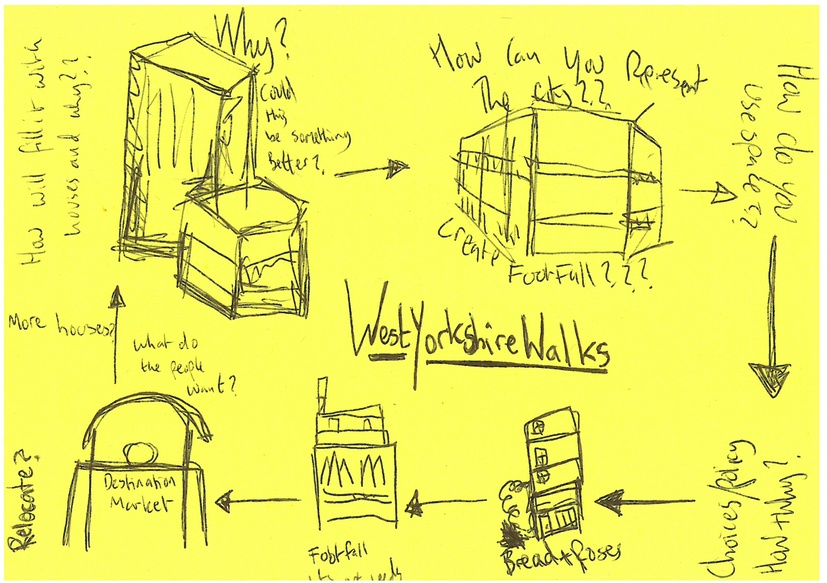 How will fill it with
houses and why??
Why?
Could
this
be something
Better?
How Can You Represent
The City??
Create
FootFall???
How do you
use space??
West Yorkshire Walks
More houses?
what do
the people
want?
Relocate?
Destination
Market
Footfall
Bread+Roses
Choices/policy
How+Why?